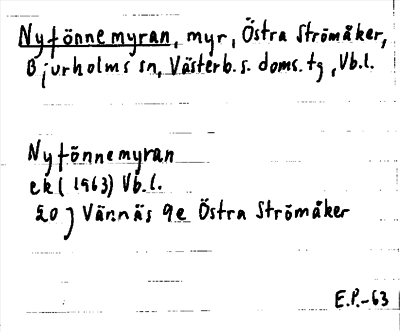 Nyfönnemyran, myr, Östra Strömåker,
Bjurholms sn, Västerb. s. doms. tg, Vb.l.
Nyfönnemyran
ek (1963) Vb.l.
20 J Vännäs 9e Östra Strömåker
E.P.-63